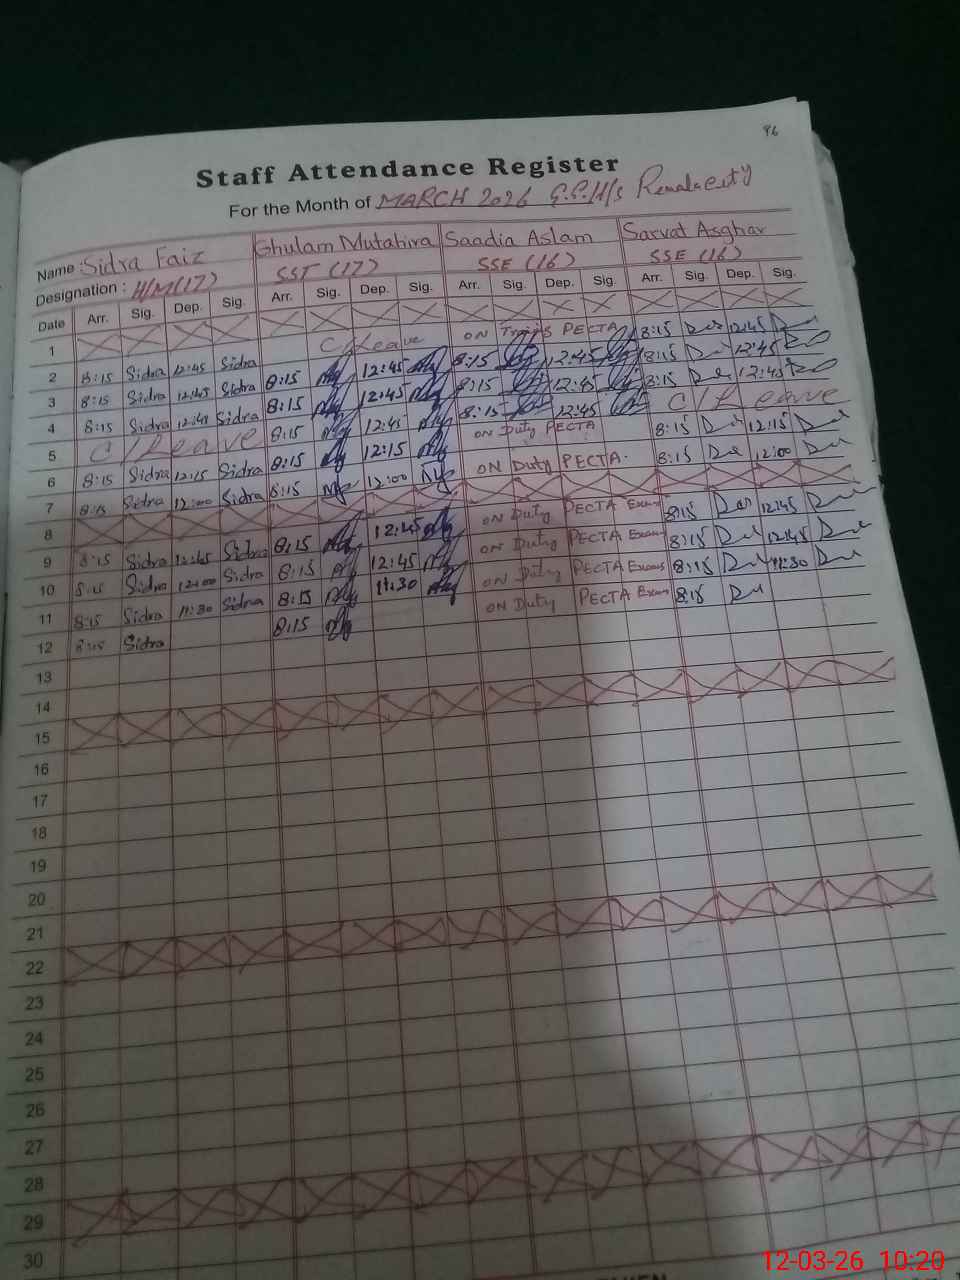 96
Staff Attendance Register
For the Month of MARCH 2026 G.G.H/S
Name : Sidra Faiz Ghulam Mutahira Saadia Aslam Sarvat Asghar
Designation : H/M(17) SST (17) SSE (16) SSE (16)
Date Arr. Sig. Dep. Sig. Arr. Sig. Dep. Sig. Arr. Sig. Dep. Sig. Arr. Sig. Dep. Sig.
1
2 8:15 Sidra 12:45 Sidra C/Leave ON PECTA 8:15 12:45
3 8:15 Sidra 12:45 Sidra 8:15 12:45 8:15 12:45 8:15 12:45
4 8:15 Sidra Sidra 8:15 12:45 8:15 12:45 8:15 12:45
5 C/Leave 8:15 12:45 8:15 12:45 C/Leave
6 8:15 Sidra 12:15 Sidra 8:15 12:15 ON Duty PECTA 8:15 12:15
7 8:15 Sidra 12:00 Sidra 8:15 12:00 ON Duty PECTA. 8:15 12:00
8
9 8:15 Sidra 12:45 Sidra 8:15 12:45 ON Duty PECTA Exam 8:15 12:45
10 8:15 Sidra 12:00 Sidra 8:15 12:45 ON Duty PECTA Exam 8:15 12:45
11 8:15 Sidra 11:30 Sidra 8:15 11:30 ON Duty PECTA Exams 8:15 11:30
12 8:15 Sidra 8:15 ON Duty PECTA Exam 8:15
13
14
15
16
17
18
19
20
21
22
23
24
25
26
27
28
29
30
12-03-26 10:20